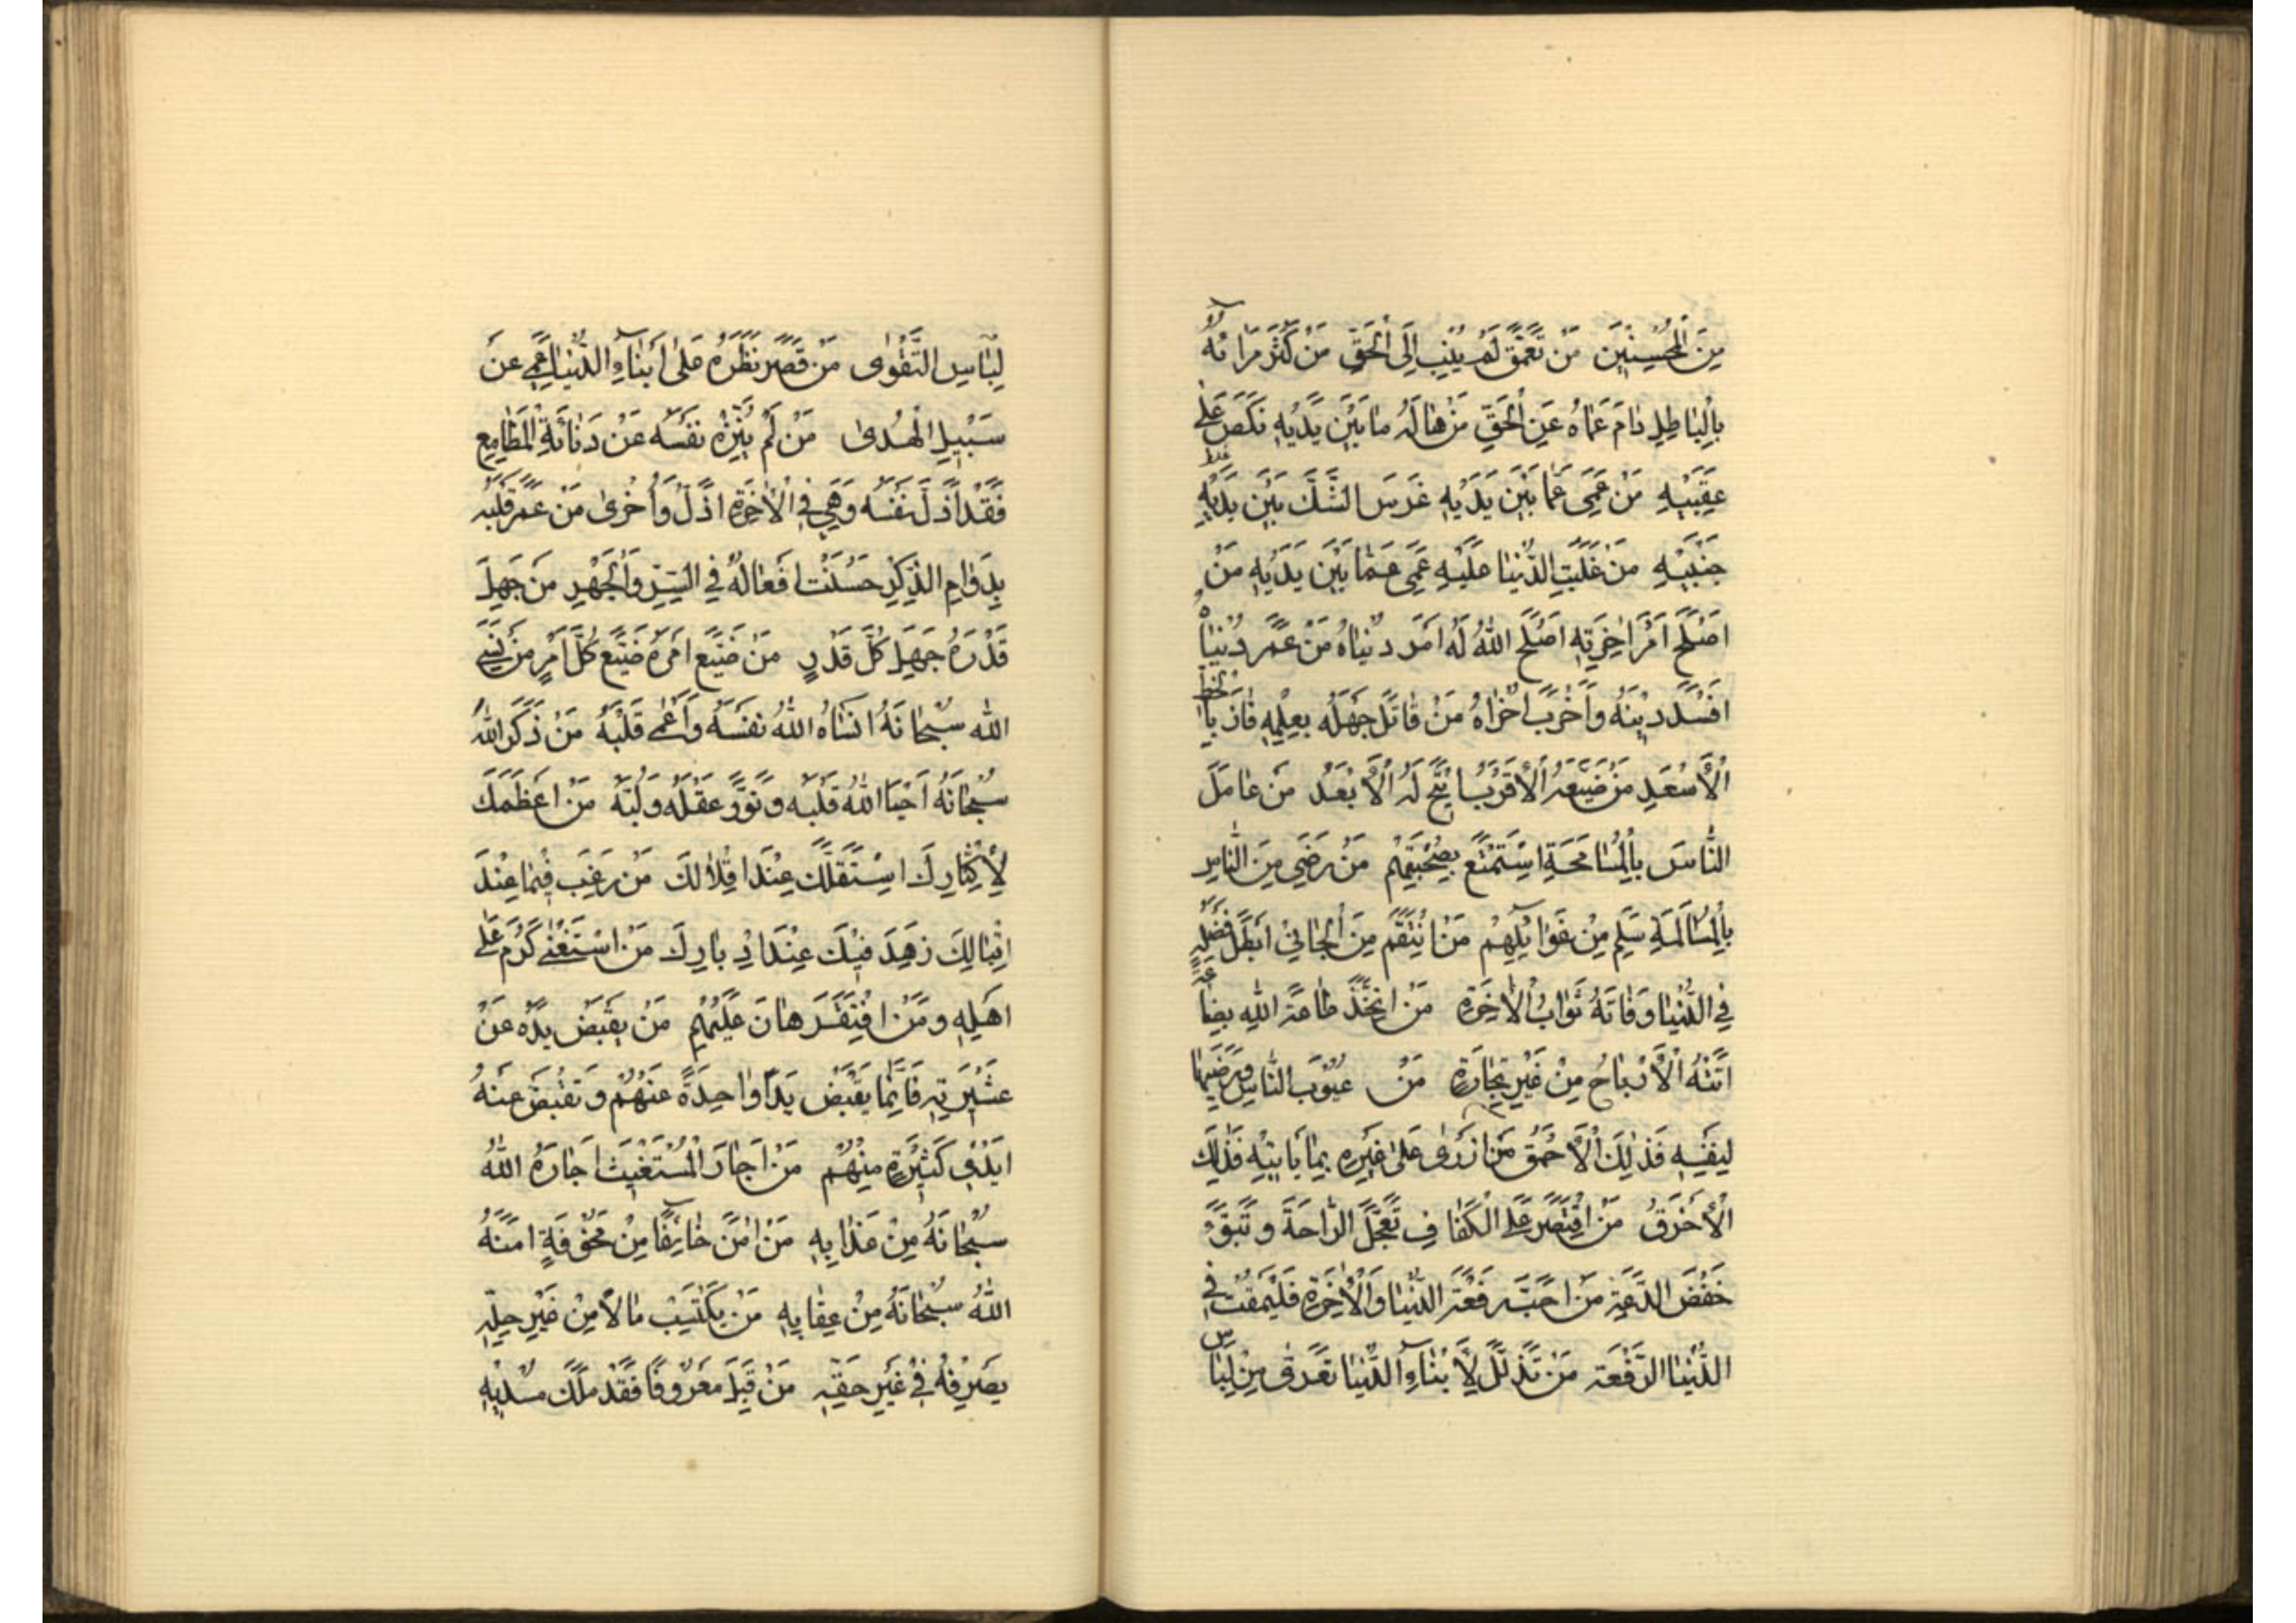 مِنَ الْمُحْسِنِينَ مَنْ تَعَمَّقَ لَمْ يُنِبْ إِلَى الْحَقِّ مَنْ كَثُرَ مِرَائُهُ
بِالْبَاطِلِ دَامَ عَمَاهُ عَنِ الْحَقِّ مَنْ هَالَهُ مَا بَيْنَ يَدَيْهِ نَكَصَ عَلَى
عَقِبَيْهِ مَنْ عَمِيَ عَمَّا بَيْنَ يَدَيْهِ غَرَسَ الشَّكَّ بَيْنَ يَدَيْهِ
جَنْبَيْهِ مَنْ غَلَبَتِ الدُّنْيَا عَلَيْهِ عَمِيَ عَمَّا بَيْنَ يَدَيْهِ مَنْ
اَصْلَحَ اَمْرَ اٰخِرَتِهِ اَصْلَحَ اللهُ لَهُ اَمْرَ دُنْيَاهُ مَنْ عَمَّرَ دُنْيَاهُ
اَفْسَدَ دِينَهُ وَاَخْرَبَ اُخْرَاهُ مَنْ قَاتَلَ جَهْلَهُ بِعِلْمِهِ فَازَ بِالْحَظِّ
الْأَسْعَدِ مَنْ ضَيَّعَهُ الْأَقْرَبُ اُتِيحَ لَهُ الْأَبْعَدُ مَنْ عَامَلَ
النَّاسَ بِالْمُسَامَحَةِ اسْتَمْتَعَ بِصُحْبَتِهِمْ مَنْ رَضِيَ مِنَ النَّاسِ
بِالْمُسَالَمَةِ سَلِمَ مِنْ غَوَائِلِهِمْ مَنْ انْتَقَمَ مِنَ الْجَانِي اَبْطَلَ فَضْلَهُ
فِي الدُّنْيَا وَفَاتَهُ ثَوَابُ الْاٰخِرَةِ مَنْ اتَّخَذَ طَاعَةَ اللهِ بِضَاعَةً
اَتَتْهُ الْأَرْبَاحُ مِنْ غَيْرِ تِجَارَةٍ مَنْ عُيُوبَ النَّاسِ وَرَضِيَهَا
لِنَفْسِهِ فَذٰلِكَ الْأَحْمَقُ مَنْ اَزْرٰى عَلٰى غَيْرِهِ بِمَا يَأْتِيهِ فَذٰلِكَ
الْأَخْرَقُ مَنْ اقْتَصَرَ عَلَى الْكَفَافِ تَعَجَّلَ الرَّاحَةَ وَتَبَوَّءَ
خَفْضَ الدَّعَةِ مَنْ اَحَبَّ رِفْعَةَ الدُّنْيَا وَالْاٰخِرَةِ فَلْيَمْقُتْ فِي
الدُّنْيَا الرَّفْعَةَ مَنْ تَذَلَّلَ لِأَبْنَاءِ الدُّنْيَا تَعَرّٰى مِنْ لِبَاسِ
لِبَاسِ التَّقْوٰى مَنْ قَصَّرَ نَظَرَهُ عَلٰى اَبْنَاءِ الدُّنْيَا عَمِيَ عَنْ
سَبِيلِ الْهُدٰى مَنْ لَمْ يُنَزِّهْ نَفْسَهُ عَنْ دَنَائَةِ الْمَطَامِعِ
فَقَدْ اَذَلَّ نَفْسَهُ وَهِيَ فِي الْاٰخِرَةِ اَذَلُّ وَاَخْزٰى مَنْ عَمَّرَ قَلْبَهُ
بِدَوَامِ الذِّكْرِ حَسُنَتْ اَفْعَالُهُ فِي السِّرِّ وَالْجَهْرِ مَنْ جَهِلَ
قَدْرَهُ جَهِلَ كُلَّ قَدْرٍ مَنْ ضَيَّعَ اَمْرَهُ ضَيَّعَ كُلَّ اَمْرٍ مَنْ نَسِيَ
اللهَ سُبْحَانَهُ اَنْسَاهُ اللهُ نَفْسَهُ وَاَعْمٰى قَلْبَهُ مَنْ ذَكَرَ اللهَ
سُبْحَانَهُ اَحْيَا اللهُ قَلْبَهُ وَنَوَّرَ عَقْلَهُ وَلُبَّهُ مَنْ اَعْظَمَكَ
لِإِكْثَارِكَ اسْتَقَلَّكَ عِنْدَ اِقْلَالِكَ مَنْ رَغِبَ فِيمَا عِنْدَ
اِقْبَالِكَ زَهِدَ فِيكَ عِنْدَ اِدْبَارِكَ مَنْ اسْتَغْنٰى كَرُمَ عَلٰى
اَهْلِهِ وَمَنْ افْتَقَرَ هَانَ عَلَيْهِمْ مَنْ يَقْبِضْ يَدَهُ عَنْ
عَشِيرَتِهِ فَاِنَّمَا يَقْبِضُ يَدًا وَاحِدَةً عَنْهُمْ وَتُقْبَضُ عَنْهُ
اَيْدِي كَثِيرَةٍ مِنْهُمْ مَنْ اَجَارَ الْمُسْتَغِيثَ اَجَارَهُ اللهُ
سُبْحَانَهُ مِنْ عَذَابِهِ مَنْ اٰمَنَ خَائِفًا مِنْ مَخُوفَةٍ اٰمَنَهُ
اللهُ سُبْحَانَهُ مِنْ عِقَابِهِ مَنْ يَكْتَسِبْ مَالًا مِنْ غَيْرِ حِلِّهِ
يَصْرِفْهُ فِي غَيْرِ حَقِّهِ مَنْ قَبِلَ مَعْرُوفًا فَقَدْ مَلَكَ مُسْدِيهِ